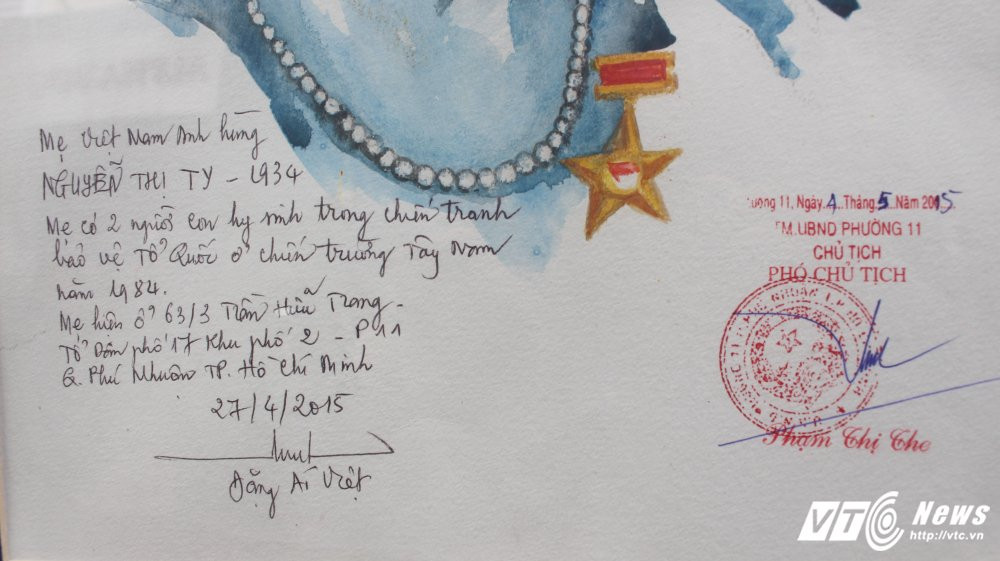 Mẹ Việt Nam Anh hùng
NGUYỄN THỊ TY - 1934
Mẹ có 2 người con hy sinh trong chiến tranh
bảo vệ Tổ Quốc ở chiến trường Tây Nam
năm 1984.
Mẹ hiện ở 63/3 Trần Hữu Trang -
Tổ Dân phố 17 Khu phố 2 - P11
Q. Phú Nhuận TP. Hồ Chí Minh
27/4/2015
Đặng Ái Việt
ường 11, Ngày 4 Tháng 5 Năm 2015
TM.UBND PHƯỜNG 11
CHỦ TỊCH
PHÓ CHỦ TỊCH
Phạm Thị The
VTC News
http://vtc.vn